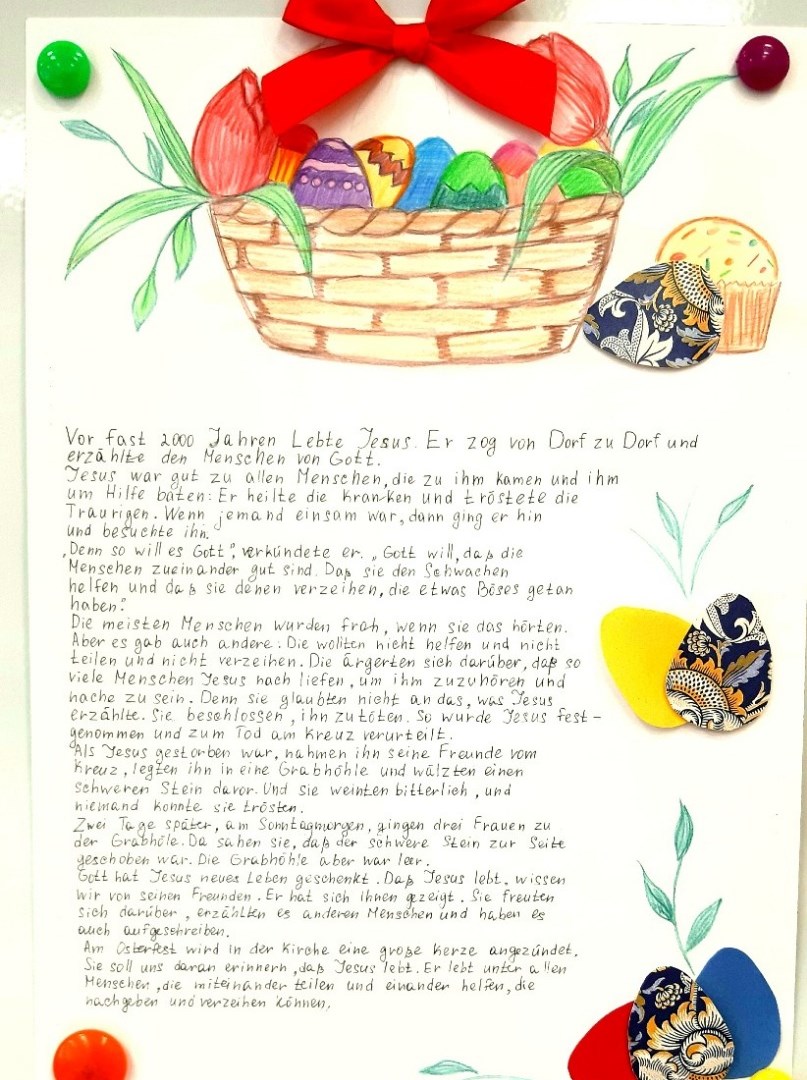 Vor fast 2000 Jahren Lebte Jesus. Er zog von Dorf zu Dorf und
erzählte den Menschen von Gott.
Jesus war gut zu allen Menschen, die zu ihm kamen und ihm
um Hilfe baten: Er heilte die Kranken und tröstete die
Traurigen. Wenn jemand einsam war, dann ging er hin
und besuchte ihn.
„Denn so will es Gott“, verkündete er. „Gott will, daß die
Menschen zueinander gut sind. Daß sie den Schwachen
helfen und daß sie denen verzeihen, die etwas Böses getan
haben.“
Die meisten Menschen wurden froh, wenn sie das hörten.
Aber es gab auch andere: Die wollten nicht helfen und nicht
teilen und nicht verzeihen. Die ärgerten sich darüber, daß so
viele Menschen Jesus nach liefen, um ihm zuzuhören und
nache zu sein. Denn sie glaubten nicht an das, was Jesus
erzählte. Sie beschlossen, ihn zu töten. So wurde Jesus fest-
genommen und zum Tod am Kreuz verurteilt.
Als Jesus gestorben war, nahmen ihn seine Freunde vom
Kreuz, legten ihn in eine Grabhöhle und wälzten einen
schweren Stein davor. Und sie weinten bitterlich, und
niemand konnte sie trösten.
Zwei Tage später, am Sonntagmorgen, gingen drei Frauen zu
der Grabhöle. Da sahen sie, daß der schwere Stein zur Seite
geschoben war. Die Grabhöhle aber war leer.
Gott hat Jesus neues Leben geschenkt. Daß Jesus lebt, wissen
wir von seinen Freunden. Er hat sich ihnen gezeigt. Sie freuten
sich darüber, erzählten es anderen Menschen und haben es
auch aufgeschreiben.
Am Osterfest wird in der Kirche eine große Kerze angezündet.
Sie soll uns daran erinnern, daß Jesus lebt. Er lebt unter allen
Menschen, die miteinander teilen und einander helfen, die
nachgeben und verzeihen können.